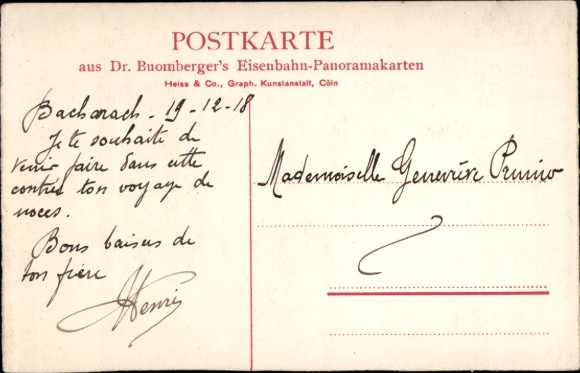 POSTKARTE
aus Dr. Buomberger's Eisenbahn-Panoramakarten
Heiss & Co., Graph. Kunstanstalt, Cöln
Bacharach - 19-12-18
Je te souhaite de
venir faire dans cette
contrée ton voyage de
noces.
Bons baisers de
ton frère
Henri
Mademoiselle Geneviève